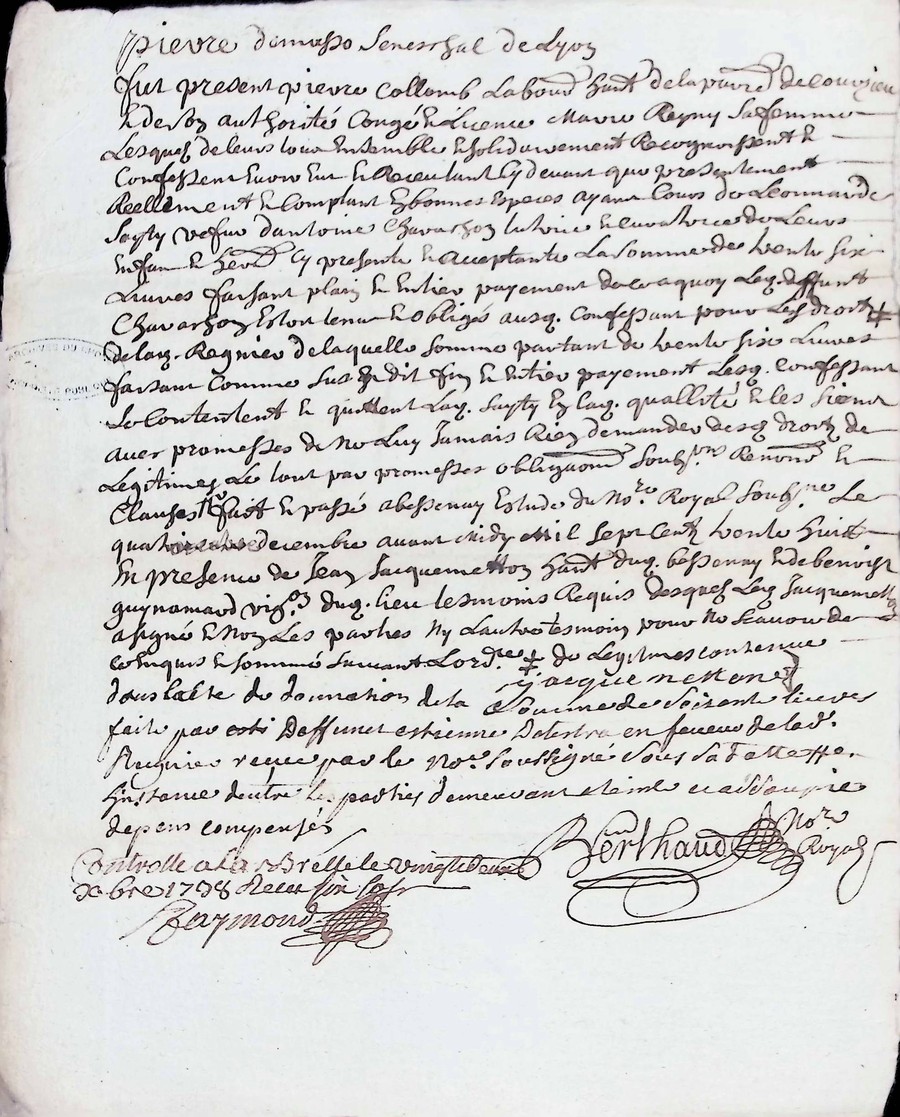 pierre demasso Seneschal de Lyon
fut present pierre Collomb Labour hant de la parre de Courzieu
& de son authorité Congé & Licence Marie Reyny sa femme
Lesquels de leurs loue Ensemble & solidairement Recognoissent &
Confessent avoir Eut & Receu tant cy devant que presentement
Reellement & Comptant En bonnes Especes ayant Cours de Leonnarde
Sayty vefue d'antoine Chavarhon tutrice & curatrice de Leurs
Enfan & herd cy presente & acceptante La somme de trente six
Livres faisant plain & Entier payement de ce a quoy Led. deffunt
Chavarhon Estoit tenu & obligé ausq. Confessant pour Les droits ‡
de lad. Regnier de laquelle somme partant de trente six Livres
faisant Comme Sus En dit fin & Entier payement Lesq. Confessant
Se Contentent & quittent Lad. Sayty En lad. quallité & les siens
avec promesses de ne Luy Jamais Rien demander desd droits de
Legitimes Le tout par promesses obligaons soubsons Renons &
Clauses fait & passé a bessenay Estude du Nore. Royal soubsne Le
decembre avant midy Mil Sept Cent trente huit
En presence de Jean Jacquemetton hant dud. bessenay & de benoist
guynamard vigon dud. lieu tesmoins Requis desquels Led Jacquemetton
a signé & Non Les parties Ny L'autre tesmoin pour ne scavoir de
ce Enquis & sommé suivant L'ordre ‡ de Legitimes contenue
Jacquemetton
dans l'acte de donnation de la somme de soixante livres
faite par Deffunct estienne en faveur de lad.
Regnier receue par le nore. soussigné sous sa datte
Instance d'entre les parties demeurant eteinte et assoupie
depens compensés
Berthaud Nore Royal
Controllé a La Bresle le vingt deux
xbre 1738 Receu six sols
Raymond